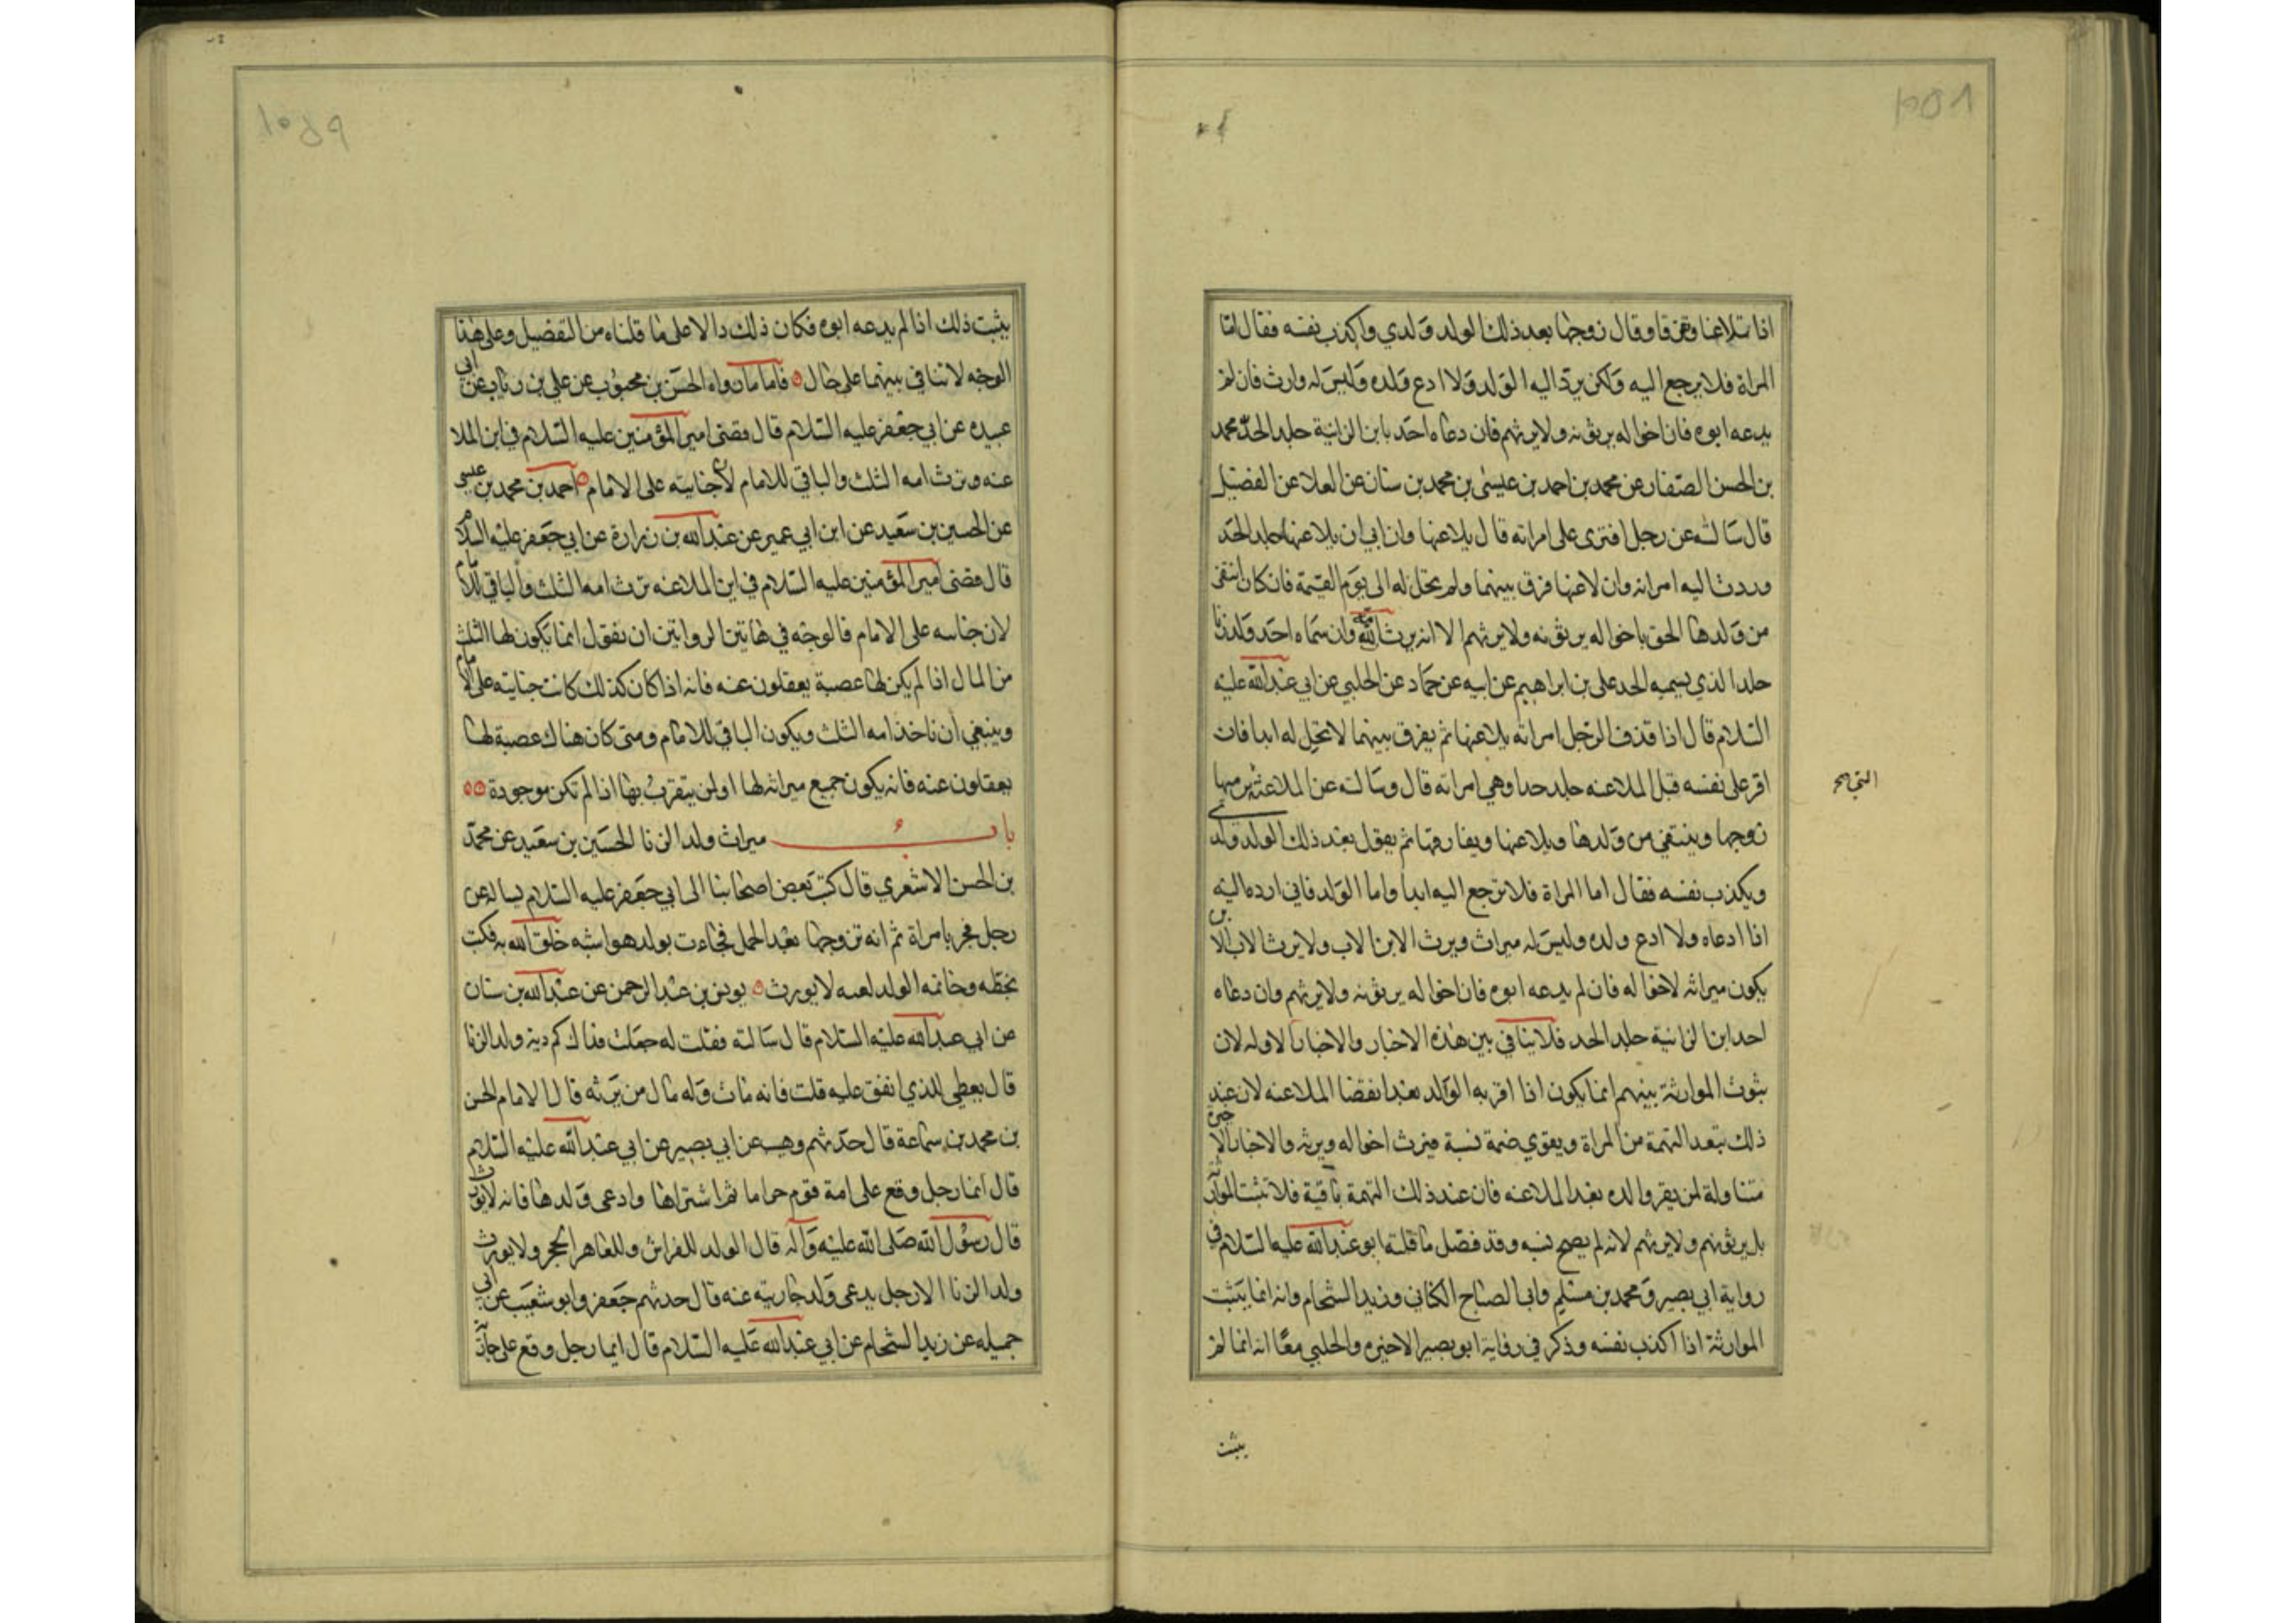 اذا تلاعنا وتفرقا وقال زوجها بعد ذلك الولد ولدي واكذب نفسه فقال اما
المراة فلا يرجع اليه ولكن يرد اليه الولد ولا ادع ولده وليس له وارث فان لم
يدعه ابوه فان اخواله يرثونه ولا يرثهم فان دعاه احد بابن الزانية جلد الحد محمد
بن الحسن الصفار عن محمد بن احمد بن عيسى بن محمد بن سنان عن العلا عن الفضيل
قال سالته عن رجل افترى على امراته قال يلاعنها وان ابى ان يلاعنها جلد الحد
وردت اليه امراته وان لاعنها فرق بينهما ولم تحل له الى يوم القيمة فان كان انتفى
من ولدها الحق باخواله يرثونه ولا يرثهم الا انه يرث امه وان سماه احد ولد زنا
جلد الذي يسميه الحد علي بن ابراهيم عن ابيه عن حماد عن الحلبي عن ابي عبدالله عليه
السلام قال اذا قذف الرجل امراته يلاعنها ثم يفرق بينهما لا تحل له ابدا فان
اقر على نفسه قبل الملاعنه جلد حدا وهي امراته قال وسالته عن الملاعنة يرميها
زوجها وينتفي من ولدها ويلاعنها ويفارقها ثم يقول بعد ذلك الولد ولدي
ويكذب نفسه فقال اما المراة فلا ترجع اليه ابدا واما الولد فاني ارده اليه
اذا ادعاه ولا ادع ولده وليس له ميراث ويرث الابن الاب ولا يرث الاب الابن
يكون ميراثه لاخواله فان لم يدعه ابوه فان اخواله يرثونه ولا يرثهم وان دعاه
احد ابن الزانية جلد الحد فلا ينافي بين هذه الاخبار والاخبار الاوله لان
ثبوت الموارثة بينهم انما يكون اذا اقر به الوالد بعد انقضا الملاعنه لان عند
ذلك تبعد التهمة من المراة ويقوي صحة نسبه فيرث اخواله ويرثه والاخبار الاخيرة
متناولة لمن يقر والده بعد الملاعنه فان عند ذلك التهمة باقية فلا تثبت الموارثة
بل يرثونهم ولا يرثهم لانه لم يصح نسبه وقد فصل ما قلته ابو عبدالله عليه السلام في
رواية ابي بصير ومحمد بن مسلم وابي الصباح الكناني وزيد الشحام وانه انما يثبت
الموارثة اذا اكذب نفسه وذكر في رواية ابو بصير الاخيره والحلبي معا انه انما لم
يثبت
يثبت ذلك اذا لم يدعه ابوه فكان ذلك دالا على ما قلناه من التفضيل وعلى هذا
الوجه لا تنافي بينهما على حال فاما ما رواه الحسن بن محبوب عن علي بن رئاب عن ابي
عبيده عن ابي جعفر عليه السلام قال قضى امير المؤمنين عليه السلام في ابن الملا
عنه وترث امه الثلث والباقي للامام لان جنايته على الامام احمد بن محمد بن عيسى
عن الحسين بن سعيد عن ابن ابي عمير عن عبدالله بن زرارة عن ابي جعفر عليه السلام
قال قضى امير المؤمنين عليه السلام في ابن الملاعنه ترث امه الثلث والباقي للامام
لان جنايته على الامام فالوجه في هاتين الروايتين ان نقول انما يكون لها الثلث
من المال اذا لم يكن لها عصبة يعقلون عنه فانه اذا كان كذلك كانت جنايته على الامام
وينبغي ان تاخذ امه الثلث ويكون الباقي للامام ومتى كان هناك عصبة لها
يعقلون عنه فانه يكون جميع ميراثه لها او لمن يتقرب بها اذا لم تكن موجودة
باب ميراث ولد الزنا الحسين بن سعيد عن محمد
بن الحسن الاشعري قال كتب بعض اصحابنا الى ابي جعفر عليه السلام يساله عن
رجل فجر بامراة ثم انه تزوجها بعد الحمل فجاءت بولد هو اشبه خلق الله به فكتب
بخطه وخاتمه الولد لغيه لا يورث يونس بن عبدالرحمن عن عبدالله بن سنان
عن ابي عبدالله عليه السلام قال سالته فقلت له جعلت فداك كم دية ولد الزنا
قال يعطى للذي انفق عليه قلت فانه مات وله مال من يرثه قال الامام الحسن
بن محمد بن سماعة قال حدثهم وهيب عن ابي بصير عن ابي عبدالله عليه السلام
قال ايما رجل وقع على امة قوم حراما ثم اشتراها وادعى ولدها فانه لا يورث
قال رسول الله صلى الله عليه وآله قال الولد للفراش وللعاهر الحجر ولا يورث
ولد الزنا الا رجل يدعى ولد جاريته عنه قال حدثهم جعفر وابو شعيب عن ابي
جميله عن زيد الشحام عن ابي عبدالله عليه السلام قال ايما رجل وقع على جارية